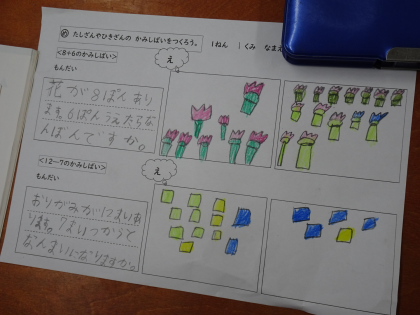 め たしざんやひきざんの かみしばいをつくろう。
1ねん 1くみ なまえ
<8+6のかみしばい>
もんだい
え
花が8ぽんあり
ます。6ぽんうえたらな
んぼんですか。
<12-7のかみしばい>
もんだい
え
おりがみが12まいあ
ります。7まいつかうと
なんまいになりますか。